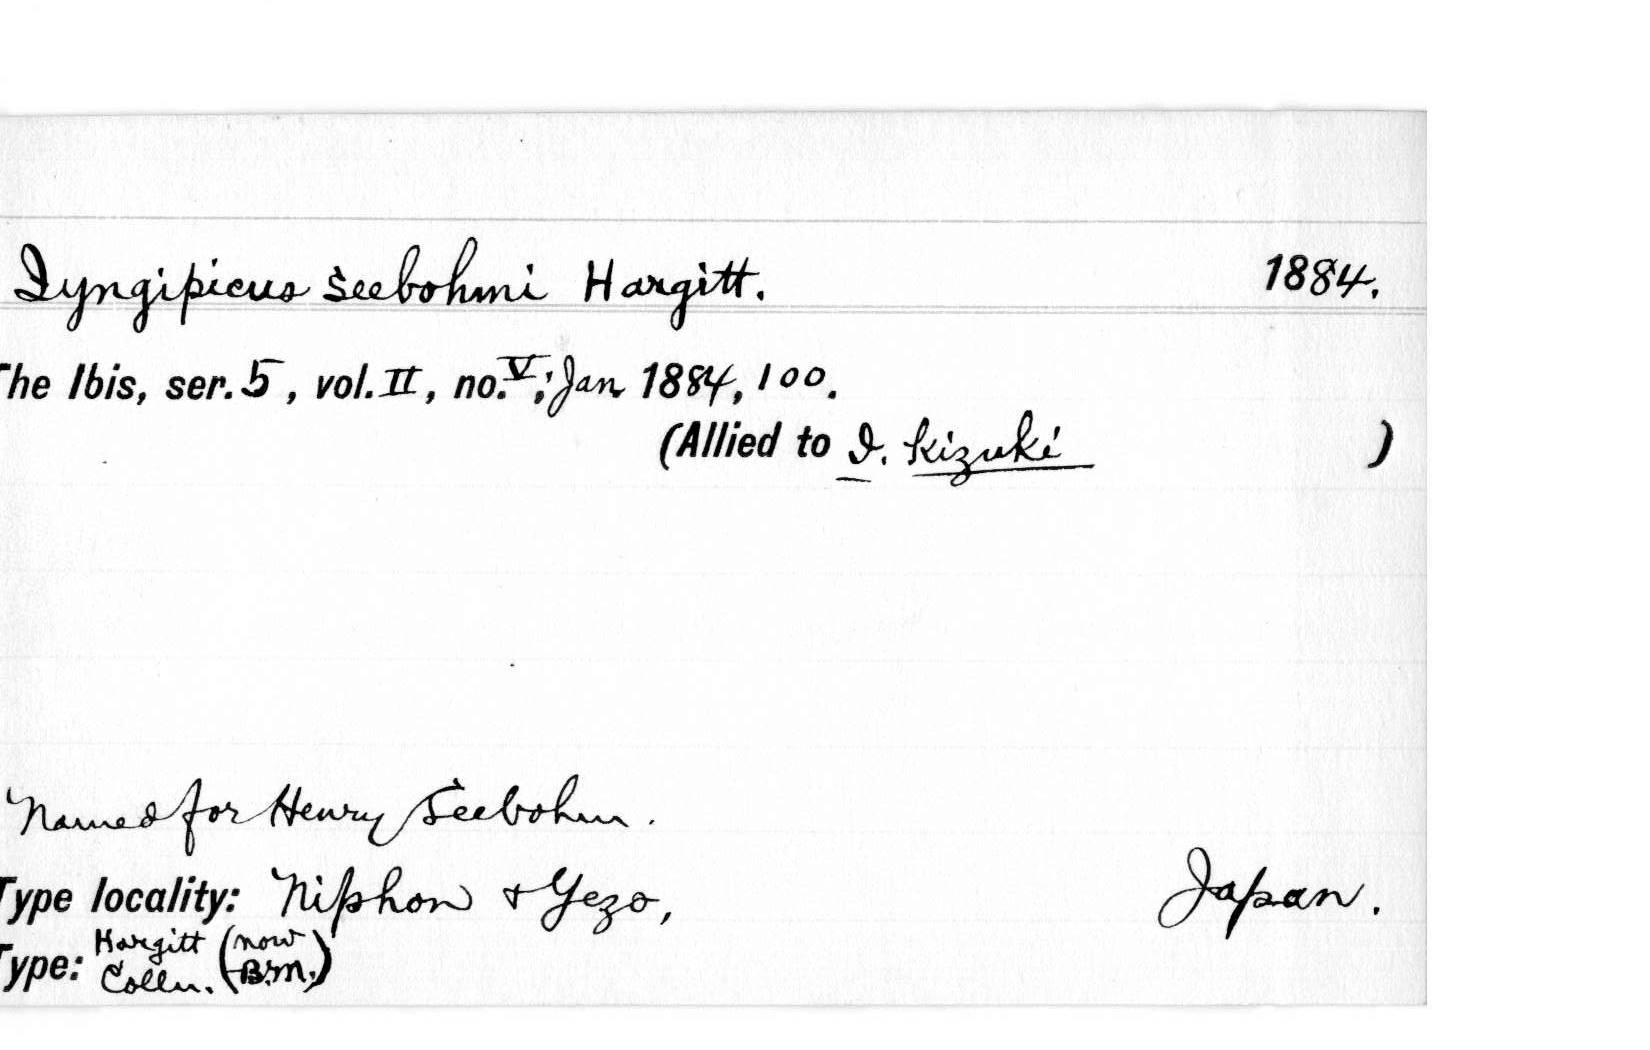 Iyngipicus seebohmi Hargitt. 1884.
The Ibis, ser. 5, vol. II, no. V, Jan. 1884, 100.
(Allied to I. kizuki )
Named for Henry Seebohm.
Type locality: Niphon & Yezo, Japan.
Type: Hargitt Colln. (now B.M.)